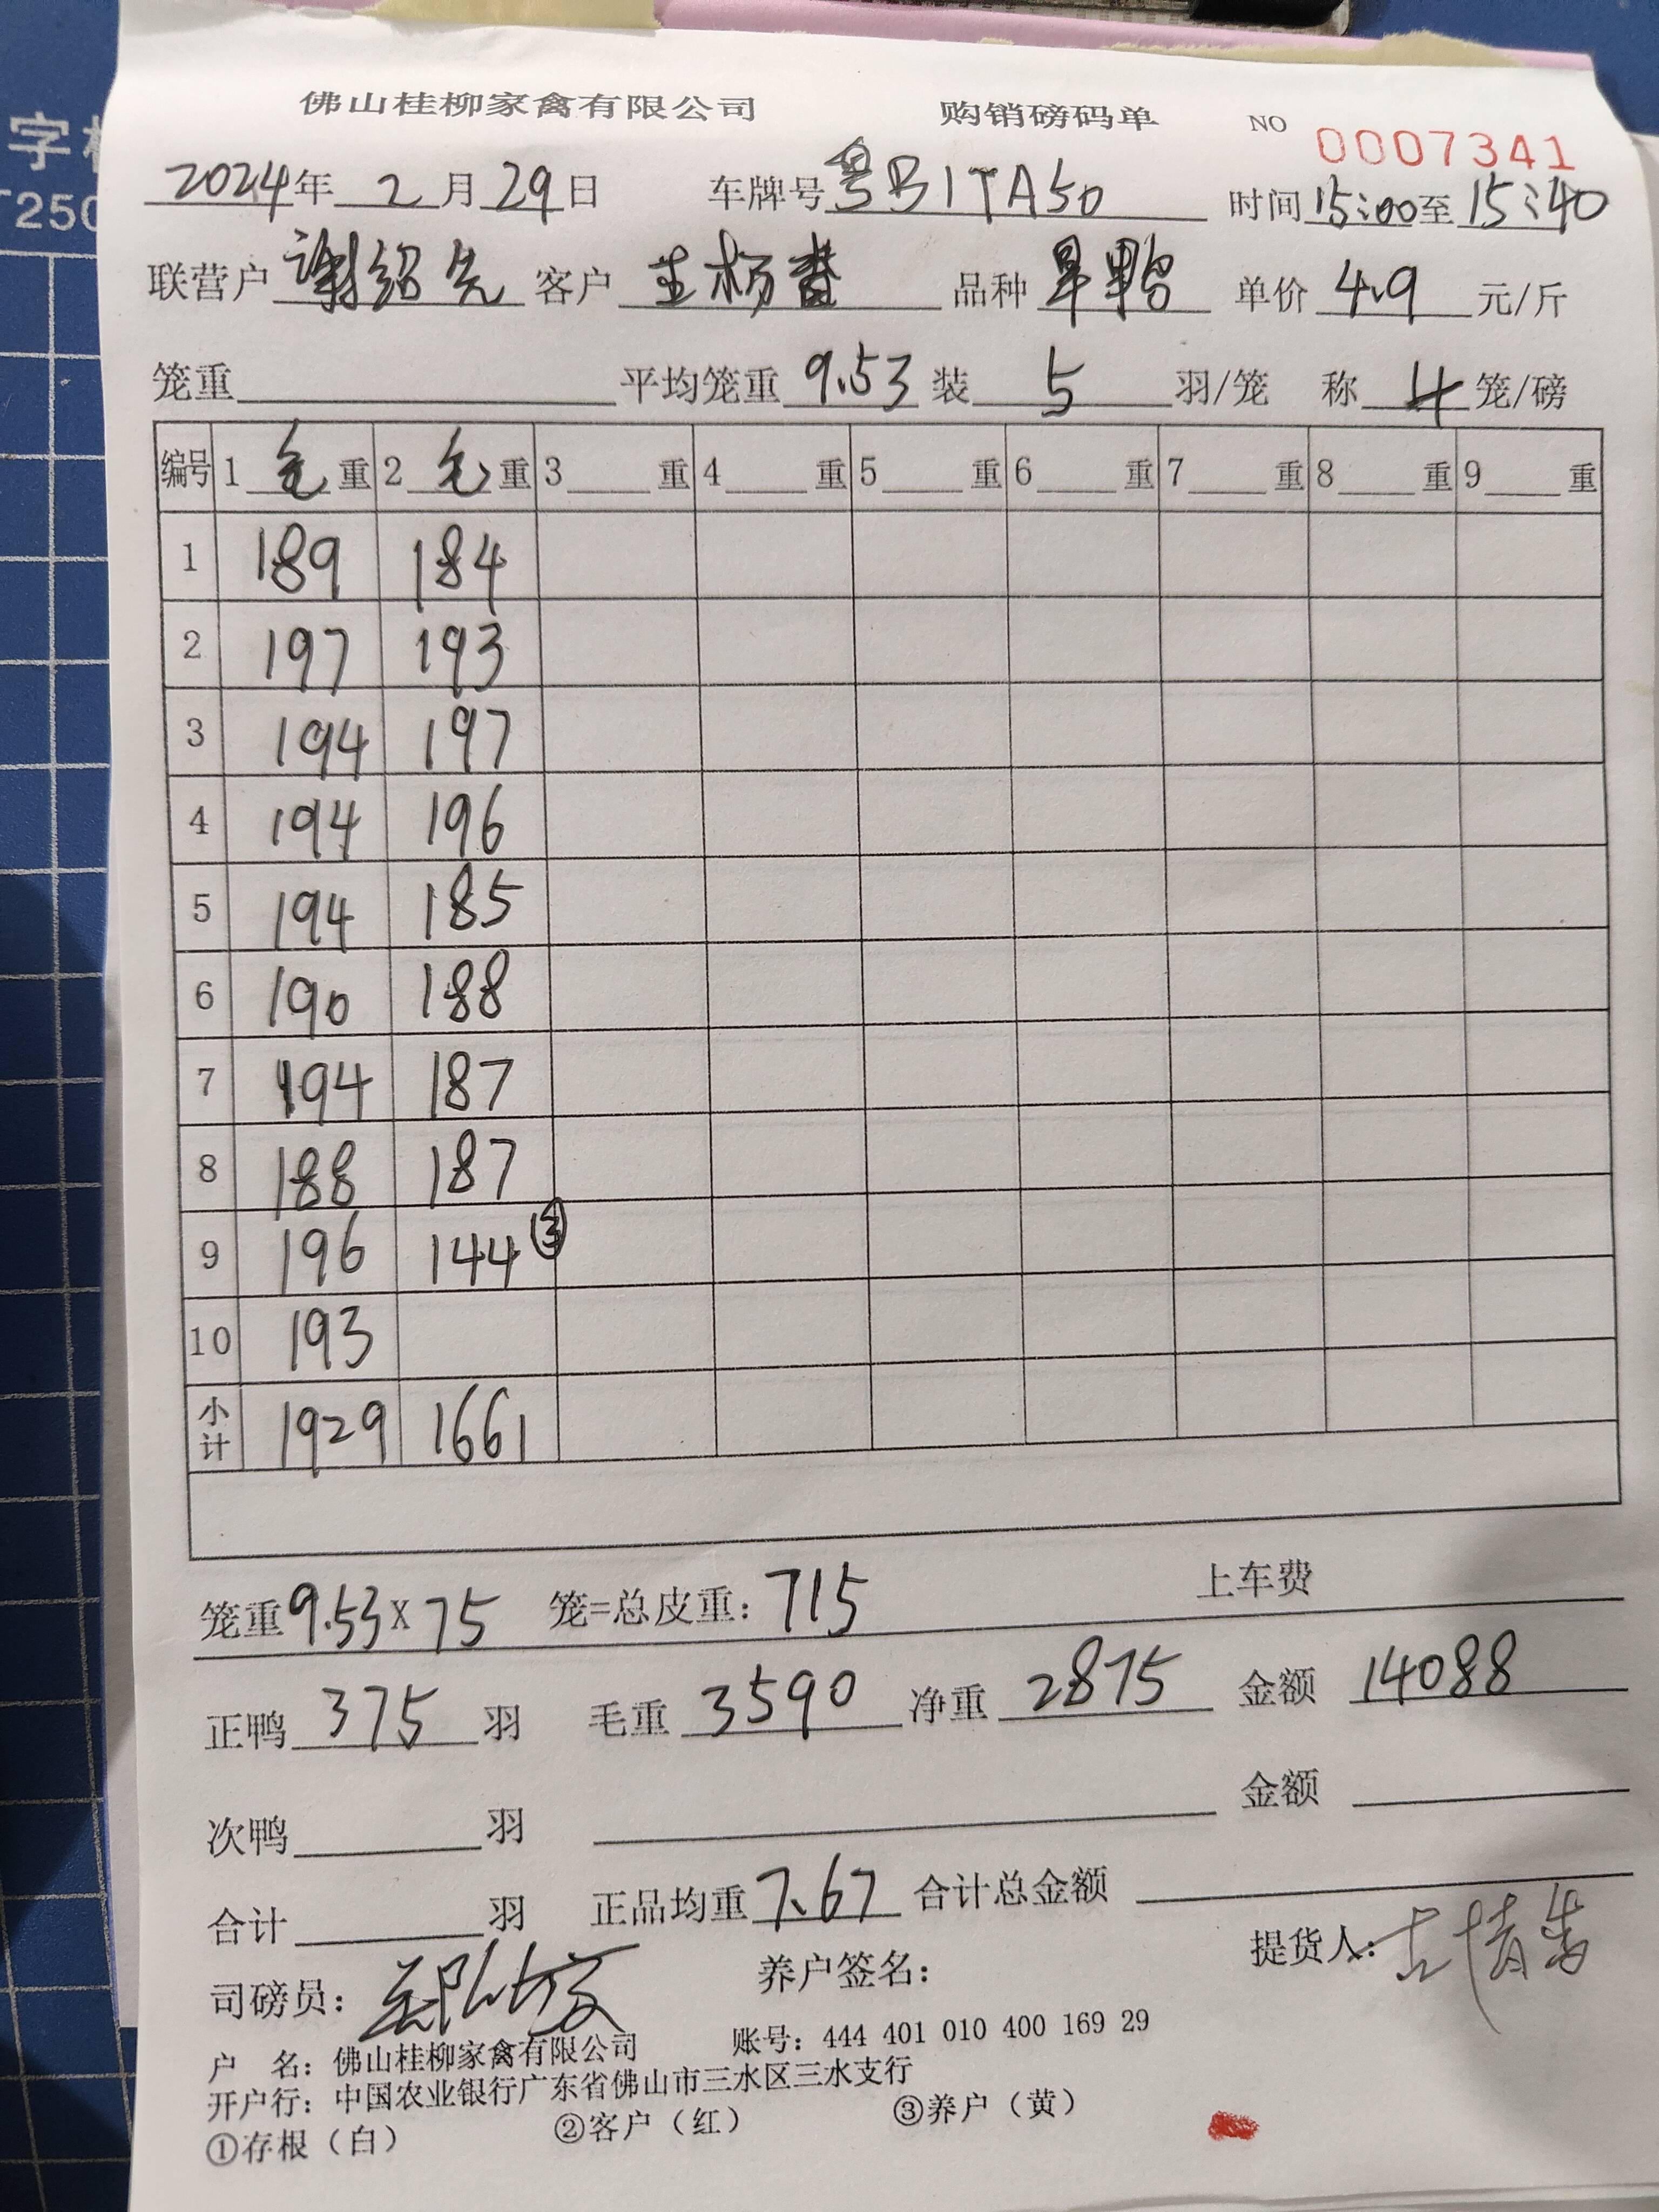 字
T250
佛山桂柳家禽有限公司 购销磅码单 NO 0007341
2024年 2月29日 车牌号粤B1TA50 时间15:00至15:40
联营户 谢绍先 客户 品种 旱鸭 单价 4.9 元/斤
笼重 平均笼重 9.53 装 5 羽/笼 称 4 笼/磅
编号 1 毛 重 2 毛 重 3 重 4 重 5 重 6 重 7 重 8 重 9 重
1 189 184
2 197 193
3 194 197
4 194 196
5 194 185
6 190 188
7 194 187
8 188 187
9 196 144 ③
10 193
小计 1929 1661
笼重9.53X 75 笼=总皮重: 715 上车费
正鸭 375 羽 毛重 3590 净重 2875 金额 14088
次鸭 羽 金额
合计 羽 正品均重 7.67 合计总金额
司磅员: 养户签名: 提货人:
户 名: 佛山桂柳家禽有限公司 账号: 444 401 010 400 169 29
开户行: 中国农业银行广东省佛山市三水区三水支行
①存根（白） ②客户（红） ③养户（黄）